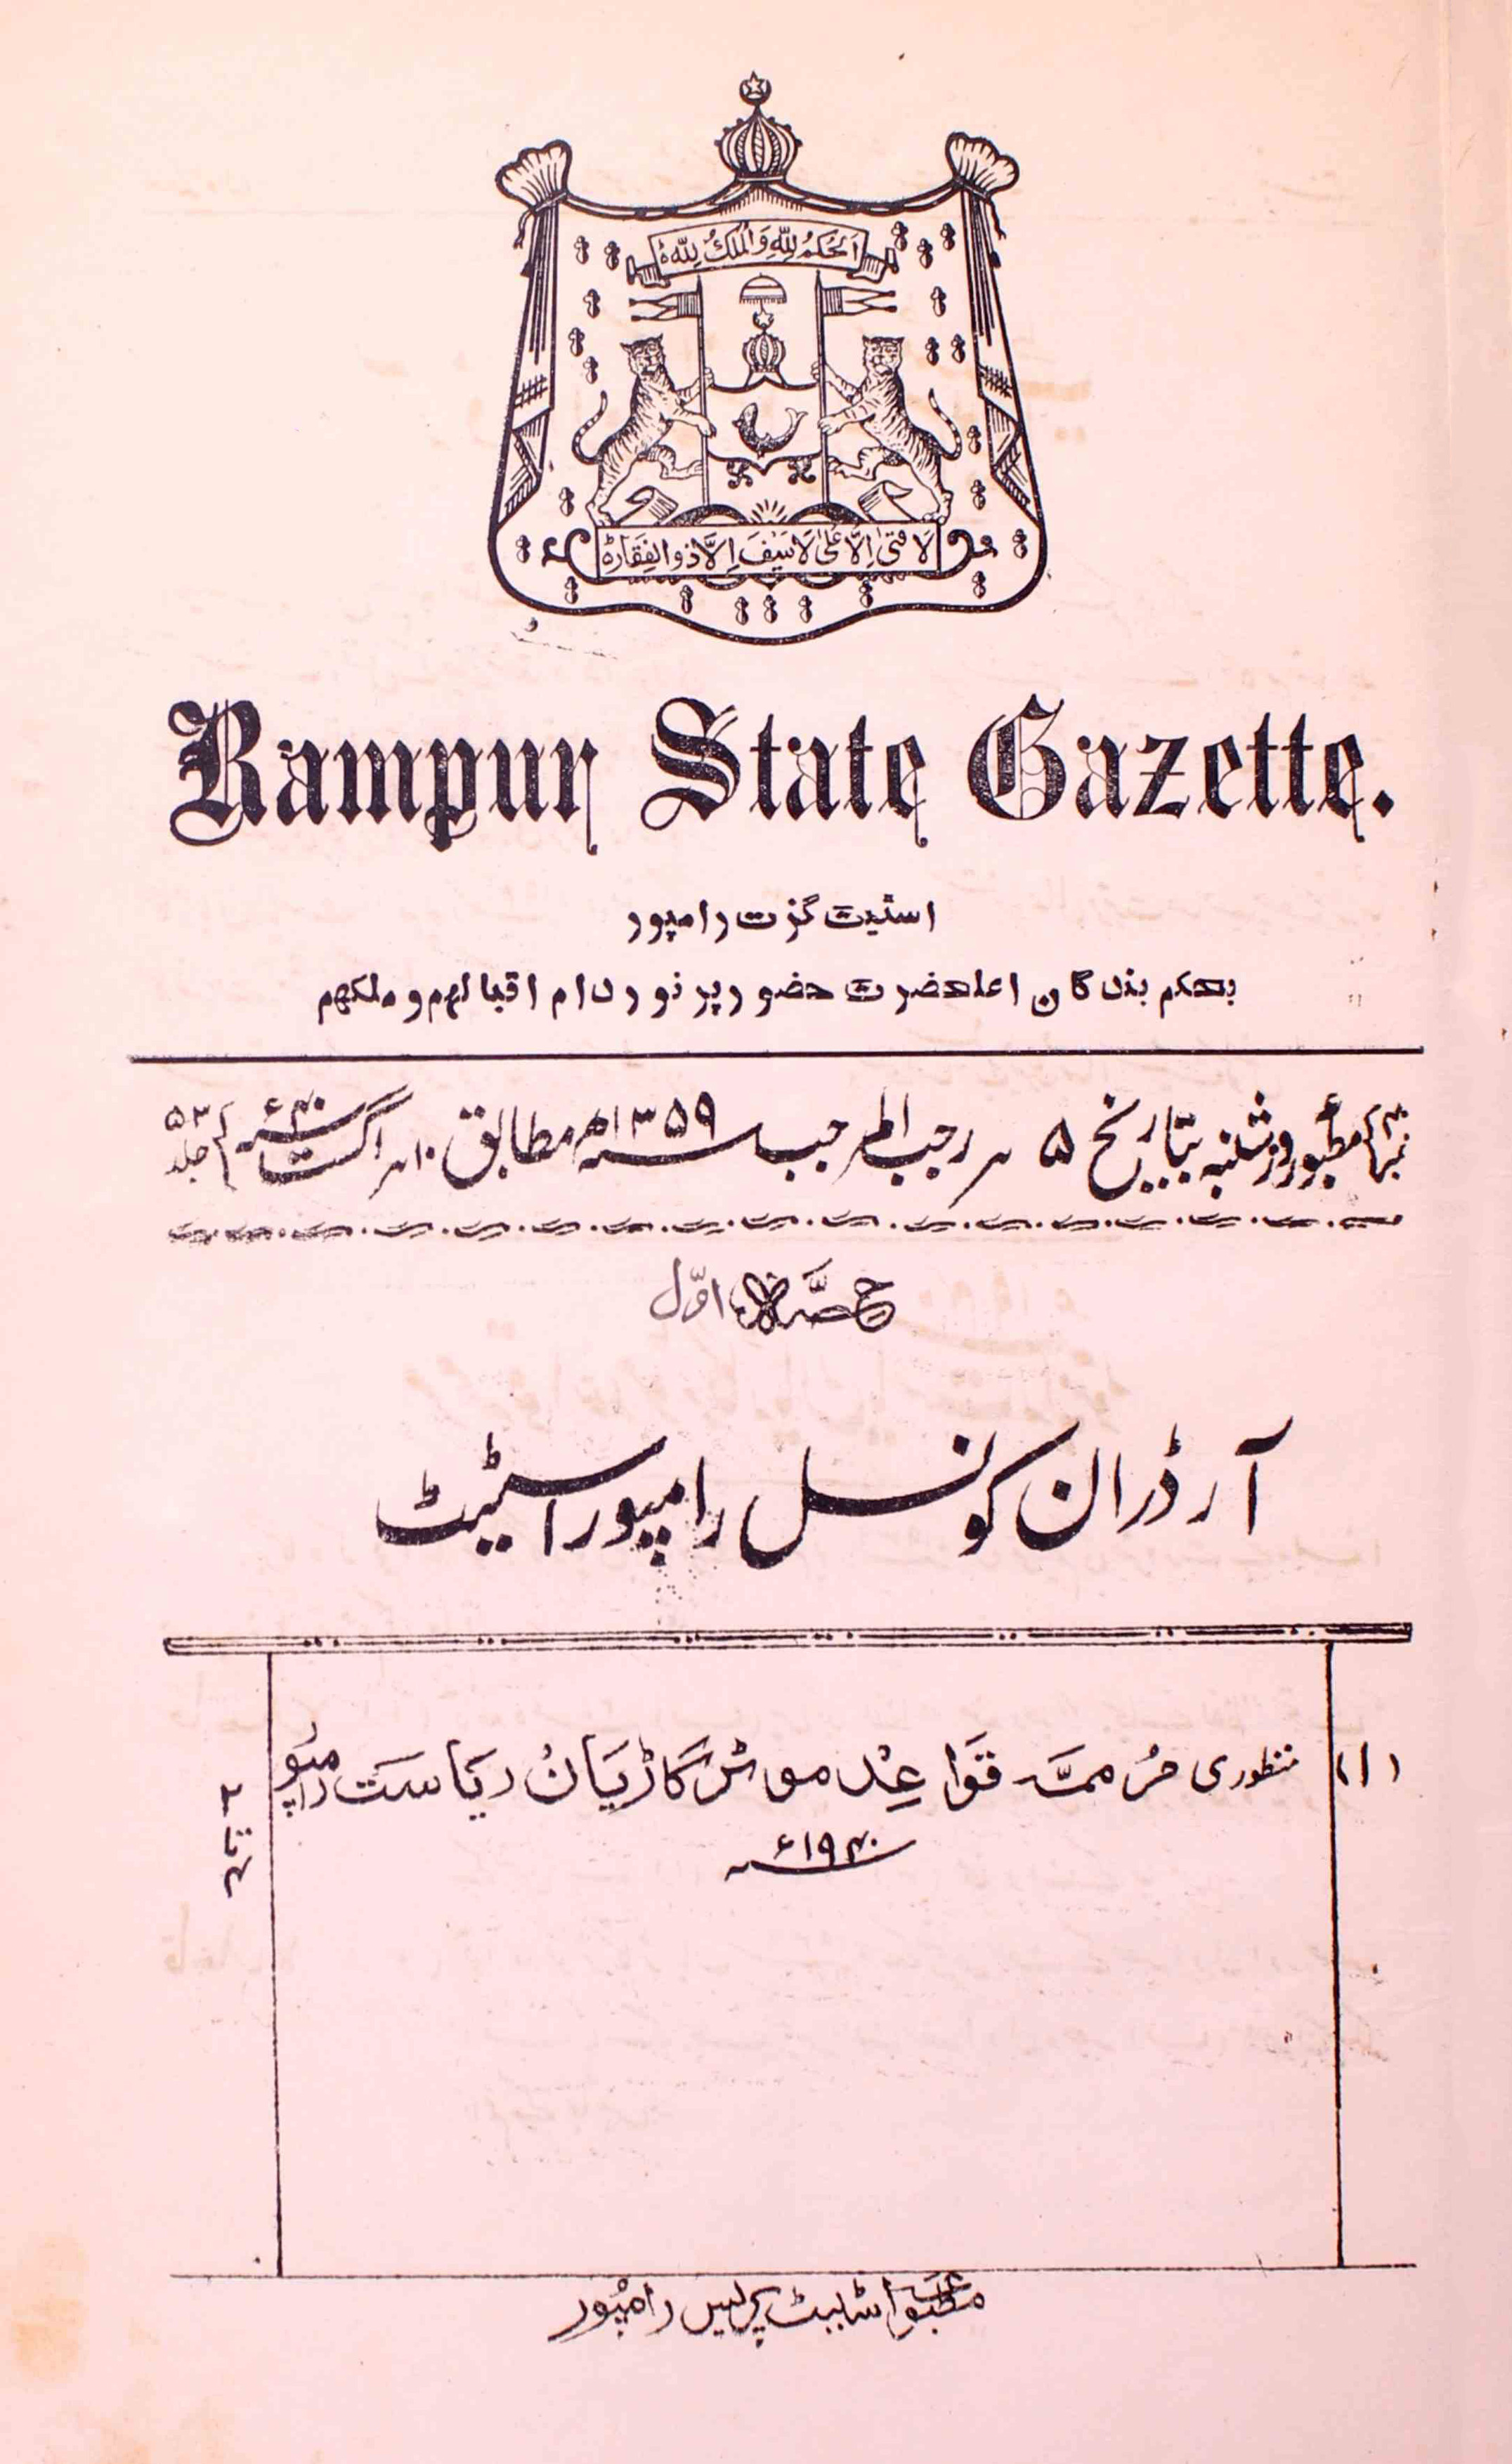 اَلْحُكْمُ لِلّٰهِ وَالْمُلْكُ لِلّٰهِ
لَا فَتٰی اِلَّا عَلی لَا سَیْفَ اِلَّا ذوالفِقَار
Rampur State Gazette.
اسٹیٹ گزٹ رامپور
بحکم بندگان اعلحضرت حضور پرنور دام اقبالہم و ملکہم
مطبوعہ روز شنبہ بتاریخ ۵ ر رجب المرجب سنہ ۱۳۵۹ھ مطابق ۱۰ ر اگست سنہ ۴۰ء جلد ۵۳
حصّہ اوّل
آرڈر ان کونسل رامپور اسٹیٹ
(۱) منظوری مُرممّہ قَوَاعِد موٹر گاڑیَان رِیَاسَت رامپُو
سنہ ۱۹۴۰ء
مطبوعہ اسٹیٹ پریس رامپُور